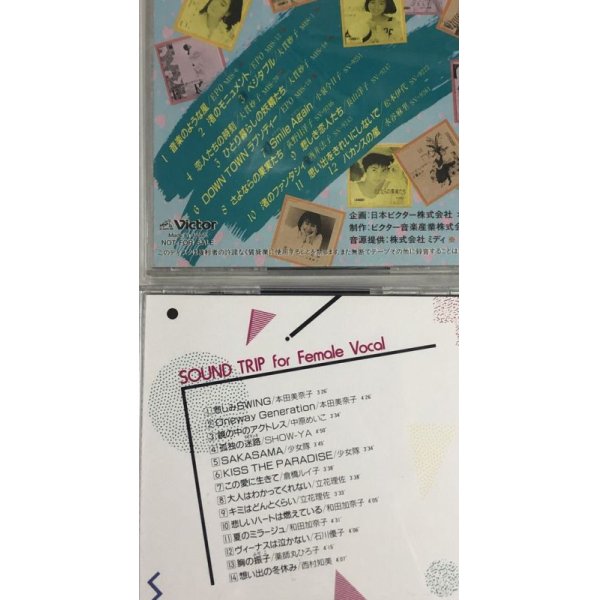 1 音楽のような風 EPO MIS-8
2 渚のモニュメント EPO MIS-11
3 ベジタブル 大貫妙子 MIS-1
4 恋人たちの時刻 大貫妙子
5 ひとり暮らしの妖精たち 大貫妙子
6 DOWN TOWN ラプソディー EPO
7 Smile Again
8 さよならの果実たち 荻野目洋子
9 悲しき恋人たち 長山洋子
10 渚のファンタシィ 酒井法子
11 思い出をきれいにしないで 松本伊代
12 バカンスの嵐
Victor
NOT FOR SALE
企画:日本ビクター株式会社
制作:ビクター音楽産業株式会
音源提供:株式会社 ミディ
SOUND TRIP for Female Vocal
① 悲しみSWING/本田美奈子 3'26"
② Oneway Generation/本田美奈子 4'26"
③ 鏡の中のアクトレス/中原めいこ 3'34"
④ 孤独の迷路/SHOW-YA 4'50"
⑤ SAKASAMA/少女隊 3'45"
⑥ KISS THE PARADISE/少女隊 3'34"
⑦ この愛に生きて/倉橋ルイ子 3'38"
⑧ 大人はわかってくれない/立花理佐 3'38"
⑨ キミはどんとくらい/立花理佐 3'33"
⑩ 悲しいハートは燃えている/和田加奈子 4'05"
⑪ 夏のミラージュ/和田加奈子 4'31"
⑫ ヴィーナスは泣かない/石川優子 4'06"
⑬ 胸の振子/薬師丸ひろ子 4'15"
⑭ 想い出の冬休み/西村知美 4'07"